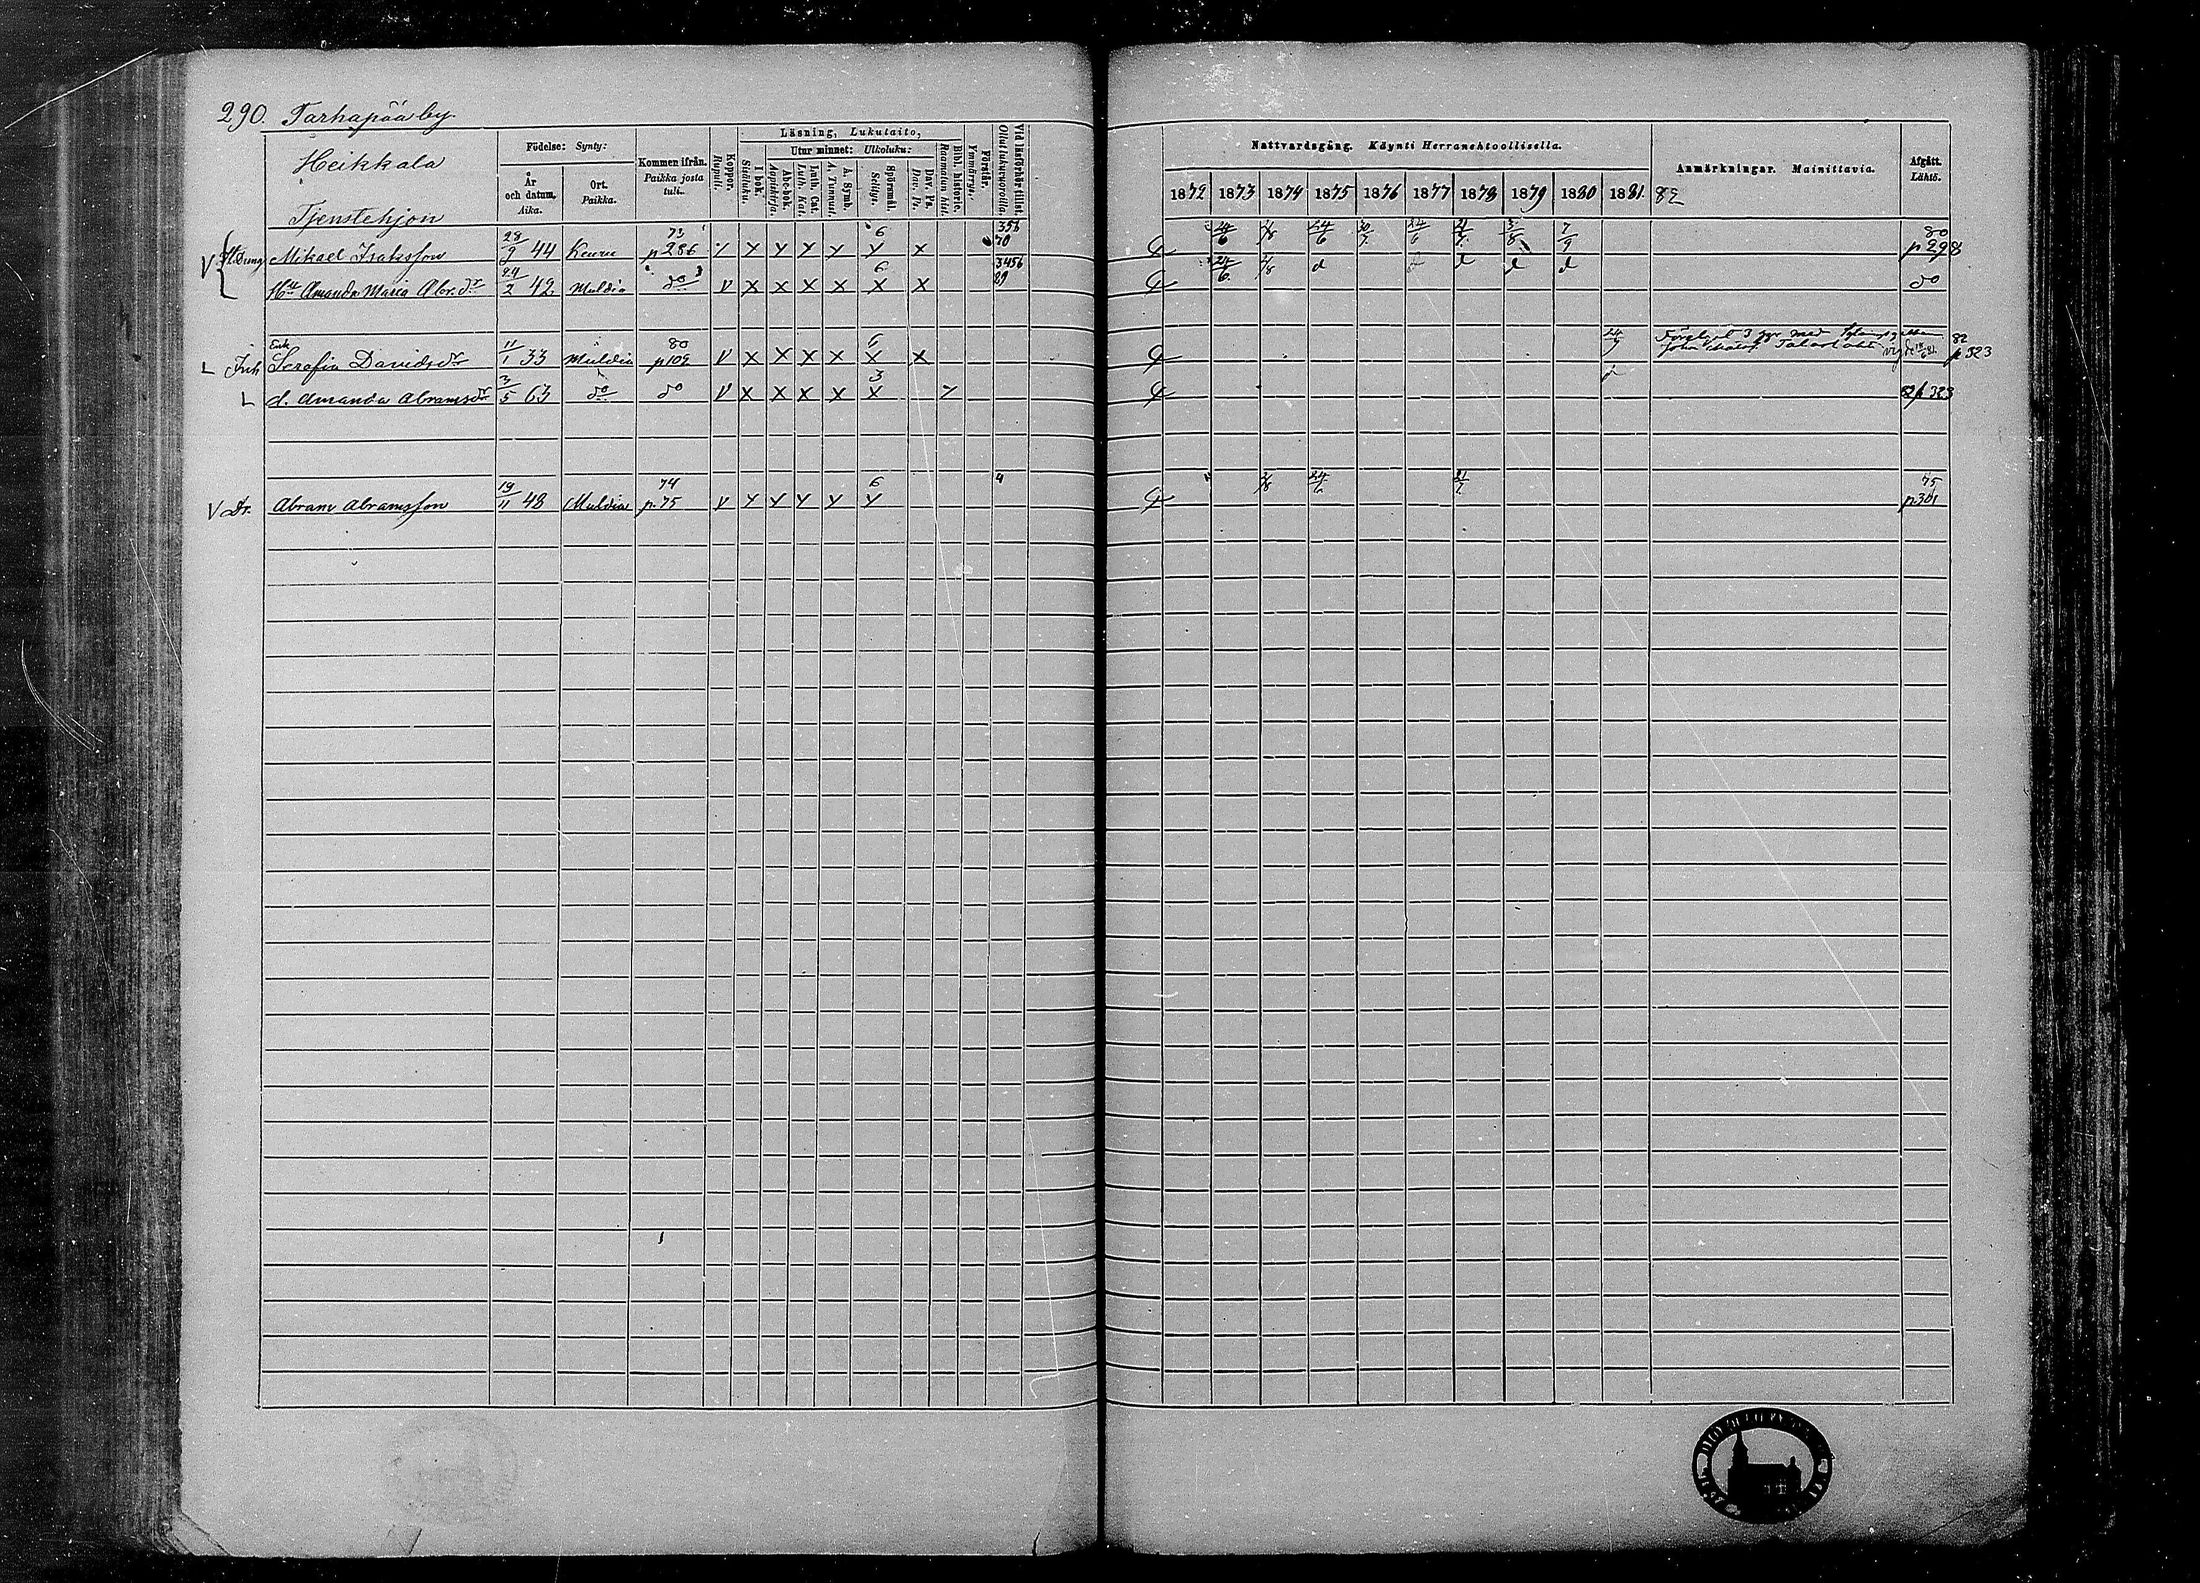 290. Tarhapää by.
Heikkala
Tjenstehjon
Födelse: Synty:
År och datum. Aika.
Ort. Paikka.
Kommen ifrån. Paikka josta tuli.
Koppor. Rupuli.
Läsning, Lukutaito,
I bok. Sisäluku.
Utur minnet: Ulkoluku:
Abc-bok. Aapiskirja.
Luth. Cat. Luth. Kat.
A. Symb. A. Tunnust.
Spörsmål. Selitys.
Dav. Ps. Dav. Ps.
Bibl. historie. Raamatun hist.
Förstår. Ymmärrys.
Vid läsförhör tillst. Ollut lukuwuoroilla.
Nattvardsgång. Käynti Herranehtoollisella.
1872 1873 1874 1875 1876 1877 1878 1879 1880 1881. 82
Anmärkningar. Mainittavia.
Afgått. Lähtö.
Mikael Isaksson 28/9 44 Keuru 73 p 286 Y X Y Y Y 6 Y X 356 70 24/6 2/8 24/6 30/7 24/6 21/7 3/8 7/9 80 p 298
Hu Amanda Maria Abr.dr 24/2 42. Muldia do V X X X X 6 X X 3456 89 24/6 2/8 d d d d d do
Enk
Inh Serafia Davidsdr 11/1 33 Muldia 80 p 109 V X X X X X X 24/7 3 med 82 p 323
d. Amanda Abramsdr 3/5 63 do do V X X X X 3 X d 82 p 323
Dr. Abram Abramsson 19/11 48 Muldia 74 p. 75 V Y Y Y Y 6 Y 4 2/8 24/6 21/7 75 p. 301